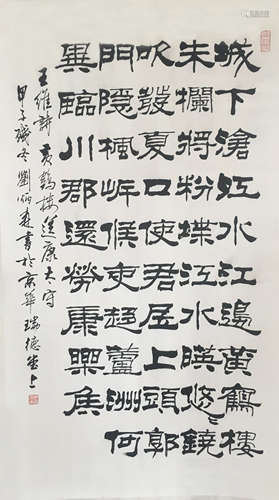 城下滄江水江邊黃鶴樓
朱欄將粉堞江水暎悠〻鐃
吹發夏口使君居上頭郭
門隱楓岸候吏趍蘆洲何
異臨川郡還勞康樂侯
王維詩黃鶴樓送康太守
甲子歲冬劉炳森書於京華瑞德堂上